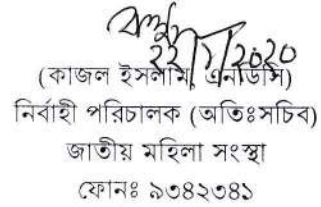 ২২/১/২০২০
(কাজল ইসলাম, এনডিসি)
নির্বাহী পরিচালক (অতিঃসচিব)
জাতীয় মহিলা সংস্থা
ফোনঃ ৯৩৪২৩৪১